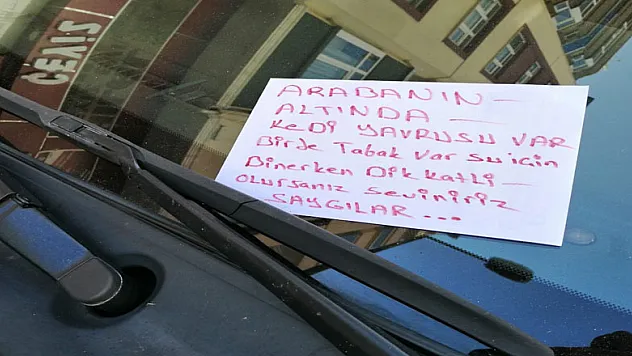 CEVİZ
ARABANIN —
ALTINDA —
KEDİ YAVRUSU VAR
BİRDE TABAK VAR SU İÇİN
BİNERKEN DİKKATLİ —
OLURSANIZ SEVİNİRİZ
SAYGILAR...